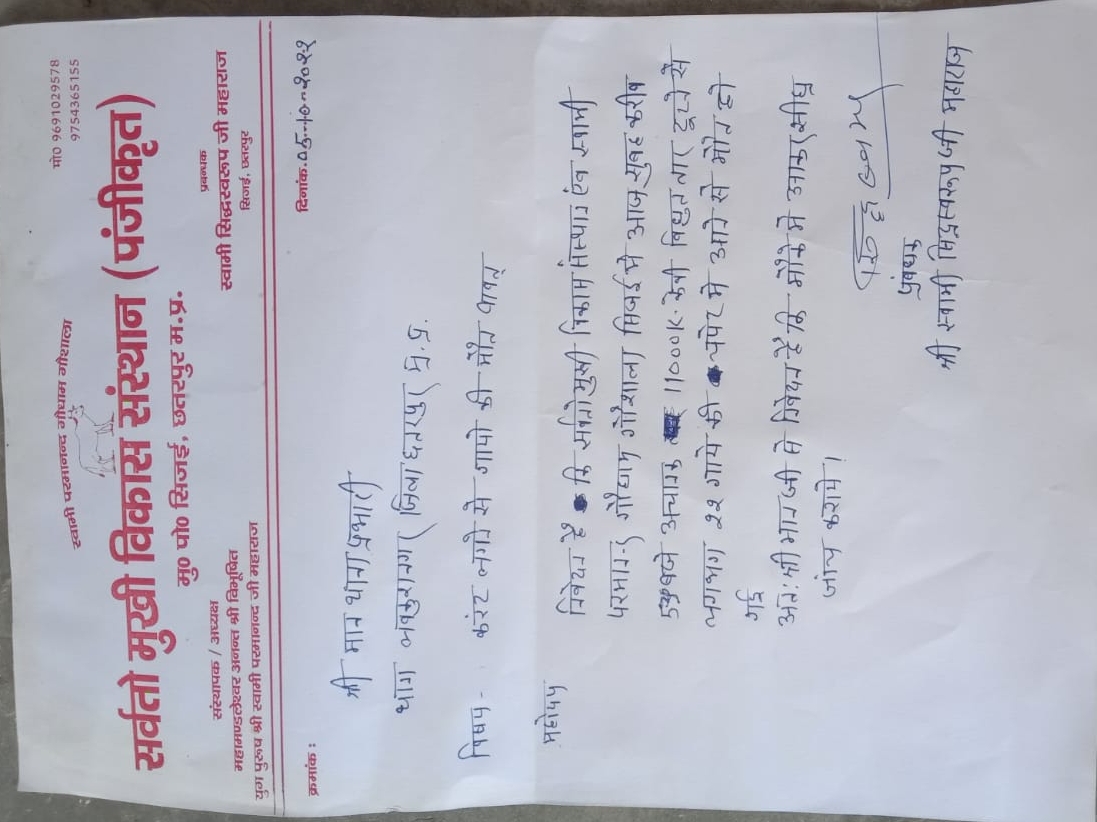 मो0 9691029578
9754365155
स्वामी परमानन्द गौधाम गौशाला
सर्वतो मुखी विकास संस्थान (पंजीकृत)
मु0 पो0 सिजई, छतरपुर म.प्र.
संस्थापक / अध्यक्ष
महामण्डलेश्वर अनन्त श्री विभूषित
युग पुरूष श्री स्वामी परमानन्द जी महाराज
प्रबन्धक
स्वामी सिद्धस्वरूप जी महाराज
सिजई, छतरपुर
क्रमांक :
दिनांक.05-10-2022
श्री मान थाना प्रभारी
थाना लवकुशनगर जिला छतरपुर म.प्र.
विषय - करंट लगने से गायो की मौत बावत्
महोदय
निवेदन है कि सर्वतोमुखी विकास संस्थान एंव स्वामी
परमानन्द गौधाम गौशाला सिजई मे आज सुबह करीब
अचानक 11000K. केवी विद्युत तार टूटने से
लगभग 22 गायो की चपेट मे आने से मौत हो
गई
अतः श्री मान जी से निवेदन है कि मौके मे आकर शीघ्र
जांच कराये।
प्रबंधक
श्री स्वामी सिद्धस्वरूप जी महाराज